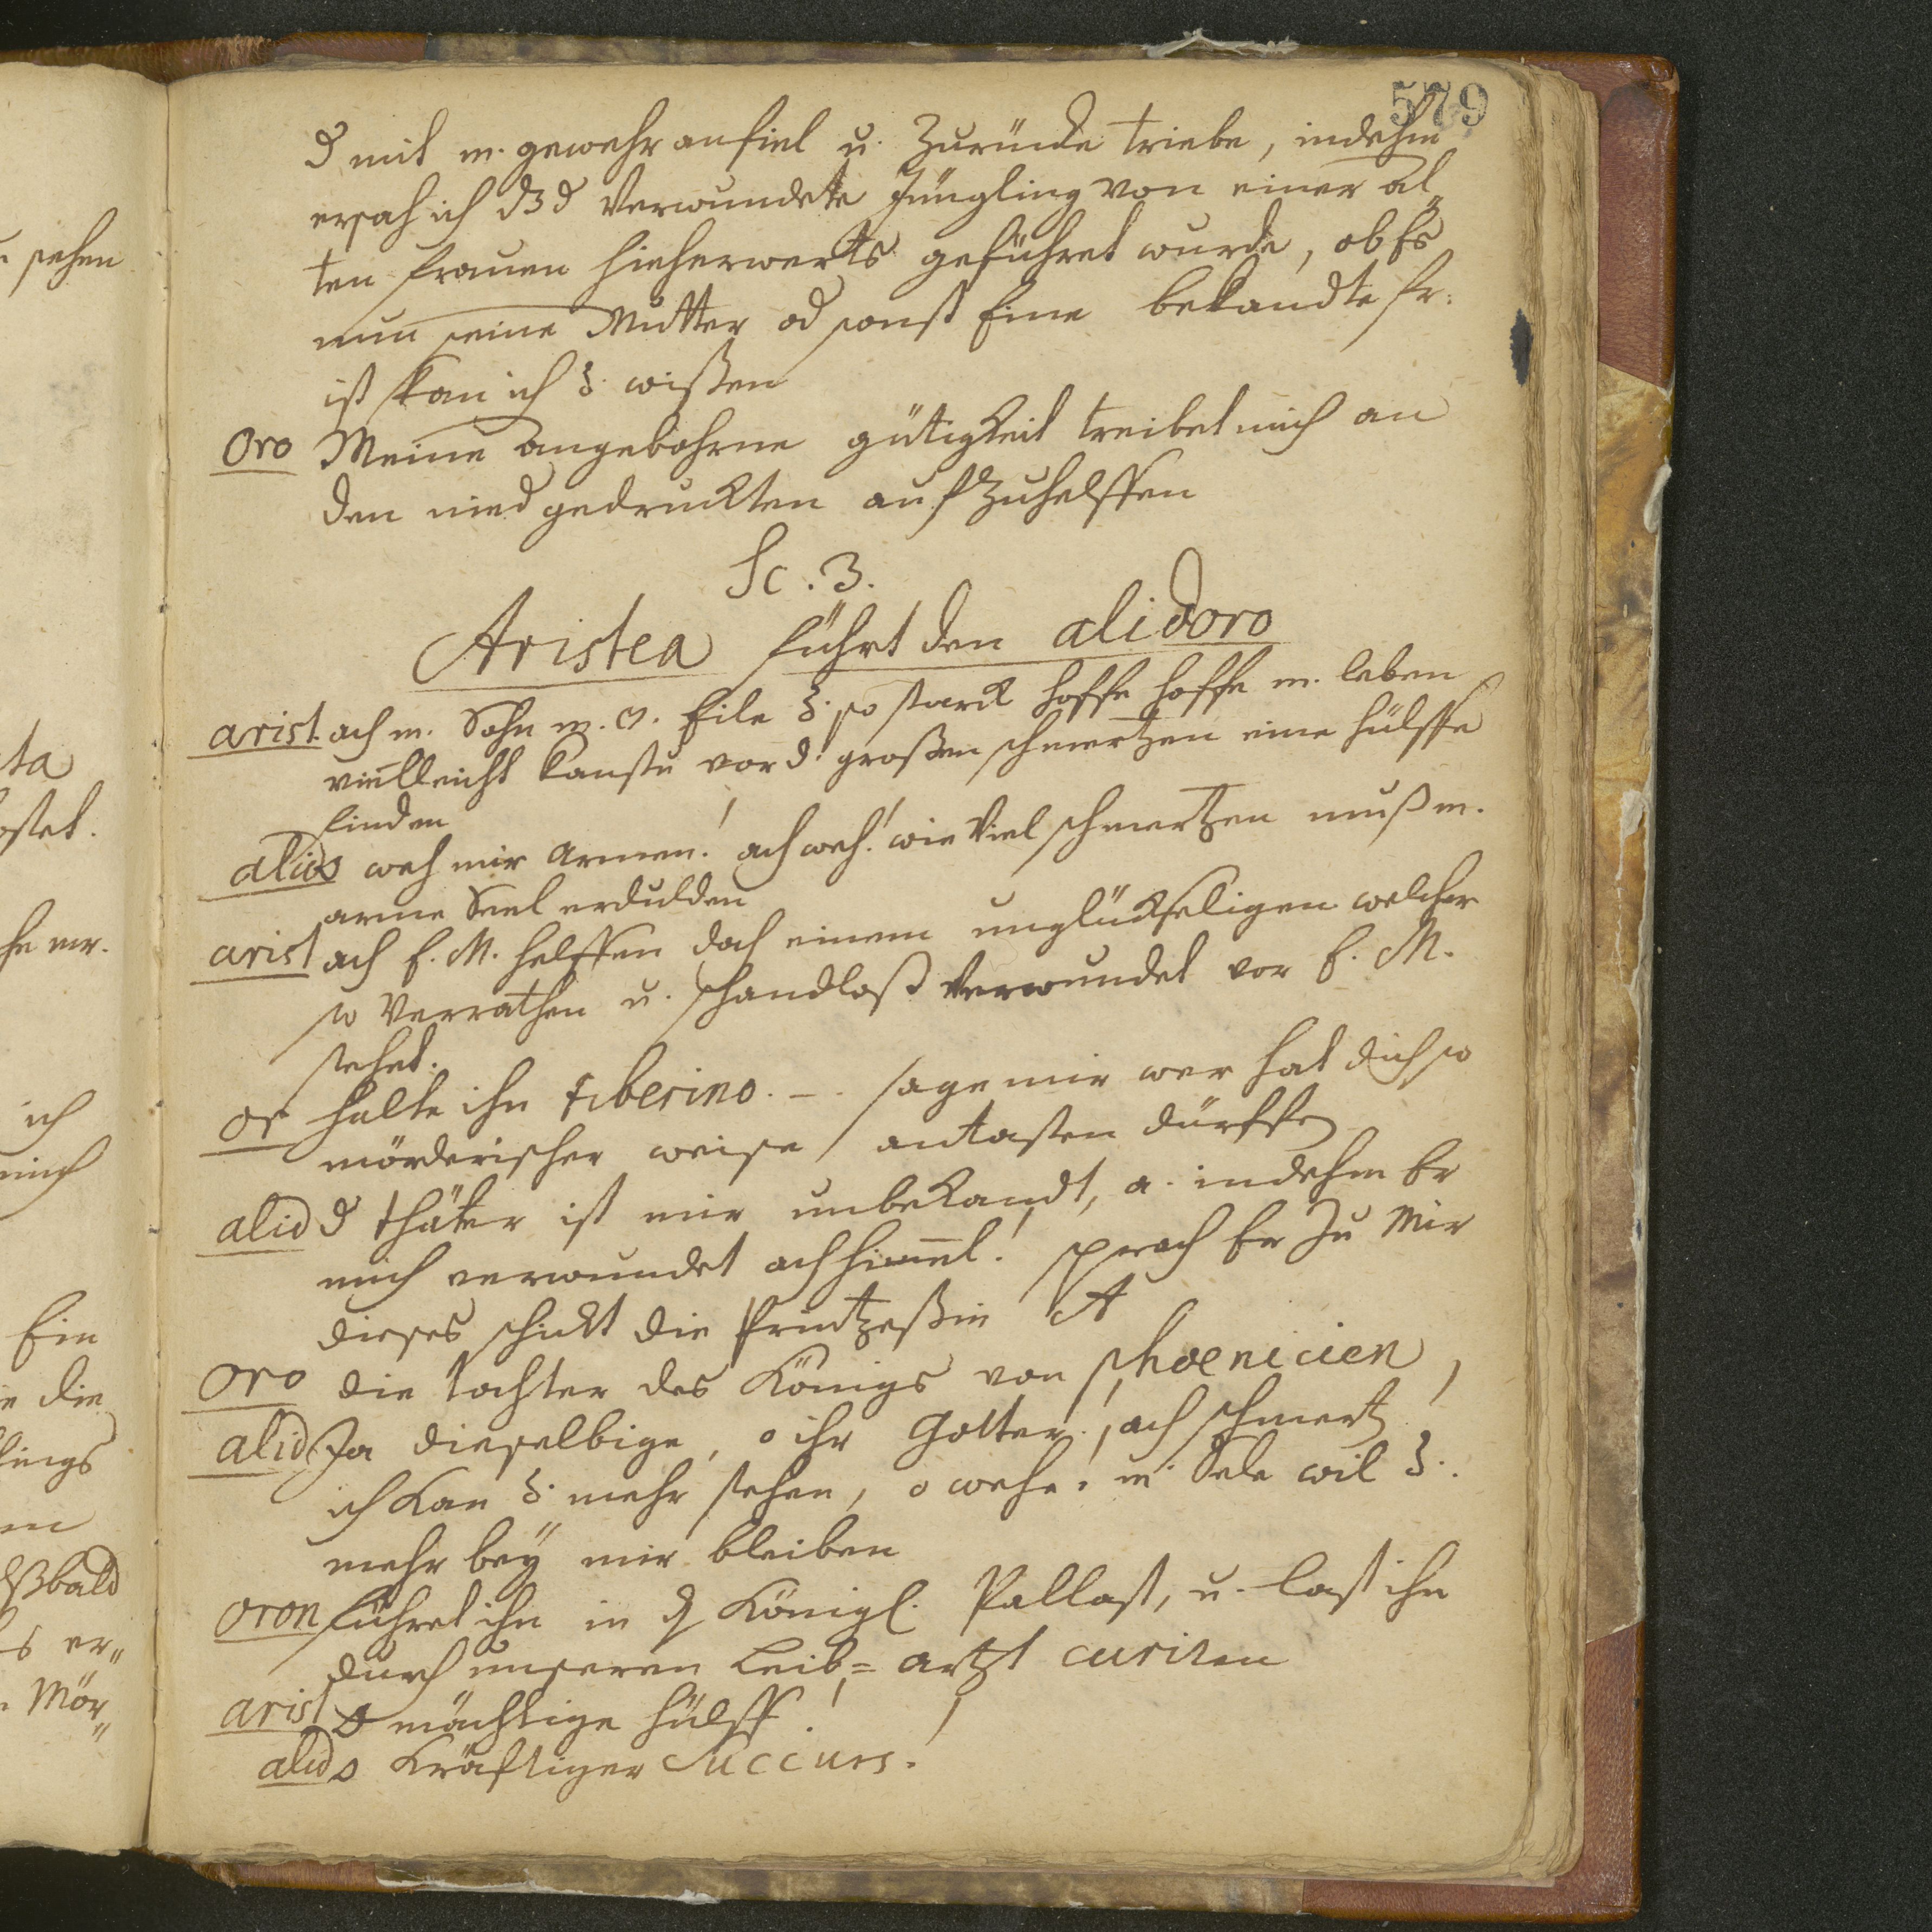 579
d mit m. gewehr anfiel u. Zurücke triebe, indehm
ersah ich dz d Verwundete Jüngling von einer al„
ten frauen hieherwerts geführet wurde, ob Es
nun seine Mutter od sonst Eine bekandte fr:
ist kan ich wißen
Oro Meine angebohrne gütigkeit treibet mich an
den nied gedruckten auf Zuhelffen
Sc. 3.
Aristea führt den alidoro
arist. ach m. Sohn m. Eile so starck hoffe hoffe m. leben
vielleicht kanstu vor d. großen schmertzen eine hülffe
finden
alid weh mir Armen! ach weh! wie Viel schmertzen muß m.
arme Seel erdulden
arist ach E. M. helffen doch einem unglückseligen welcher
so Verrathen u. schandloß Verwundet vor E. M.
stehet.
or halte ihn tiberino. – . sage mir wer hat dich so
mörderischer weise antasten dürffen
alid d thäter ist mir unbekandt, a. indehm Er
mich verwundet ach himel! sprach Er Zu Mir
dieses schickt die Printzeßin A
Oro die tochter des Königs von phoenicien,
alid Ja dieselbige, o ihr Götter! ach schmertz!
ich kan mehr stehen, o wehe! m. Sele wil
mehr bey mir bleiben
oron führet ihn in Königl. Pallast, u. last ihn
durch unseren Leib = artzt curiren
arist O mächtige hülff!
alid o kräftiger Succurs!
sehen
ta
ostet.
ich
mich
Ein
die
lings
ßbald
er„
Mör„